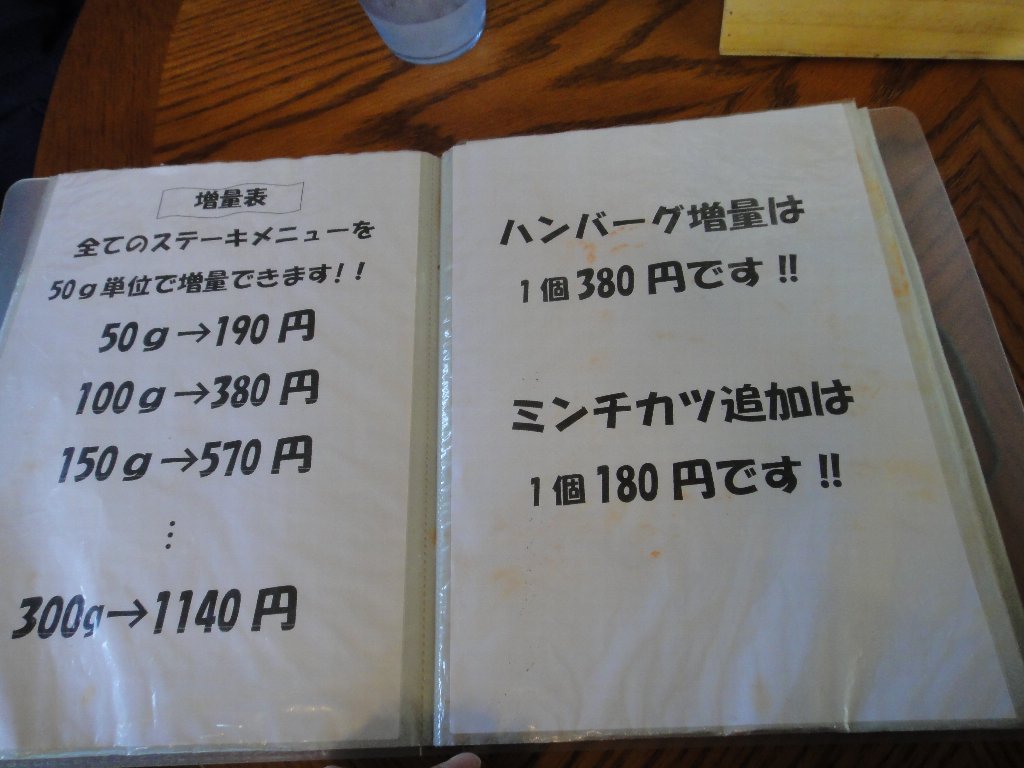 増量表
全てのステーキメニューを
50g単位で増量できます!!
50g→190円
100g→380円
150g→570円
⋮
300g→1140円
ハンバーグ増量は
1個380円です!!
ミンチカツ追加は
1個180円です!!